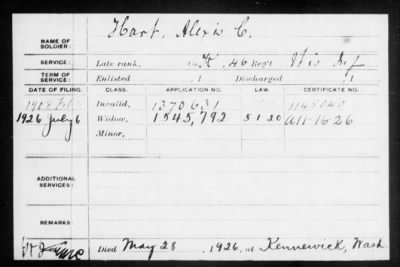 NAME OF SOLDIER: Hart, Alexis C.
SERVICE: Late rank, Co. K, 46 Reg't Wis Inf
TERM OF SERVICE: Enlisted , 1 Discharged , 1
DATE OF FILING. CLASS. APPLICATION NO. LAW. CERTIFICATE NO.
Invalid, 1370631
1926 July 6 Widow, 1545,792 5-1-20 A11-16-26
Minor,
ADDITIONAL SERVICES:
REMARKS:
Died May 28, 1926, at Kennewick, Wash